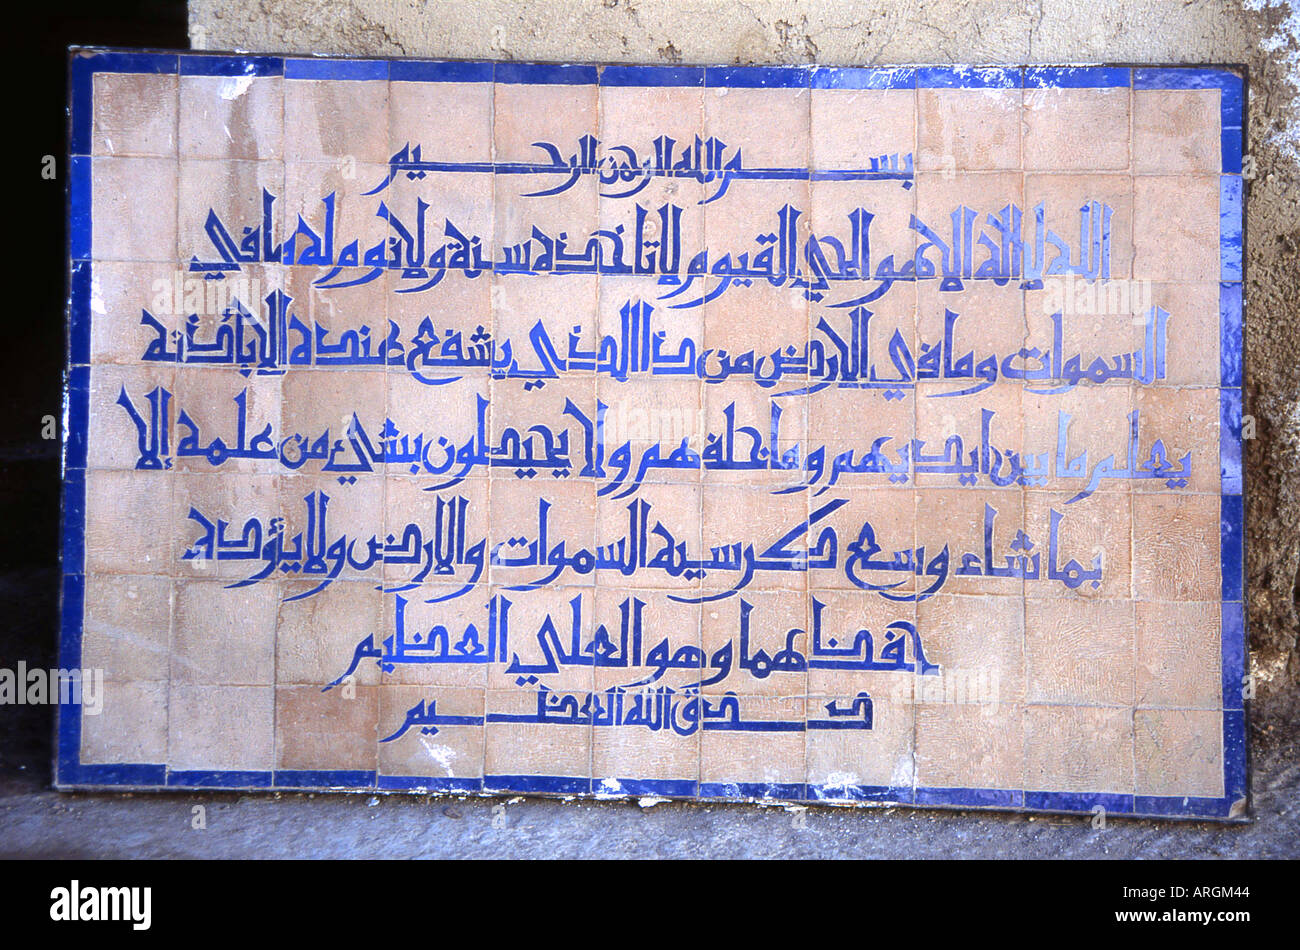 بسم الله الرحمن الرحيم
الله لا إلاه الا هو الحي القيوم لا تاخذه سنة ولا نوم له ما في
السموات وما في الارض من ذا الذي يشفع عنده الا بأذنه
يعلم ما بين ايديهم وما خلفهم ولا يحيطون بشيء من علمه إلا
بما شاء وسع كرسيه السموات والارض ولا يؤده
حفظهما وهو العلي العظيم
صدق الله العظيم
alamy
alamy
Image ID: ARGM44
www.alamy.com